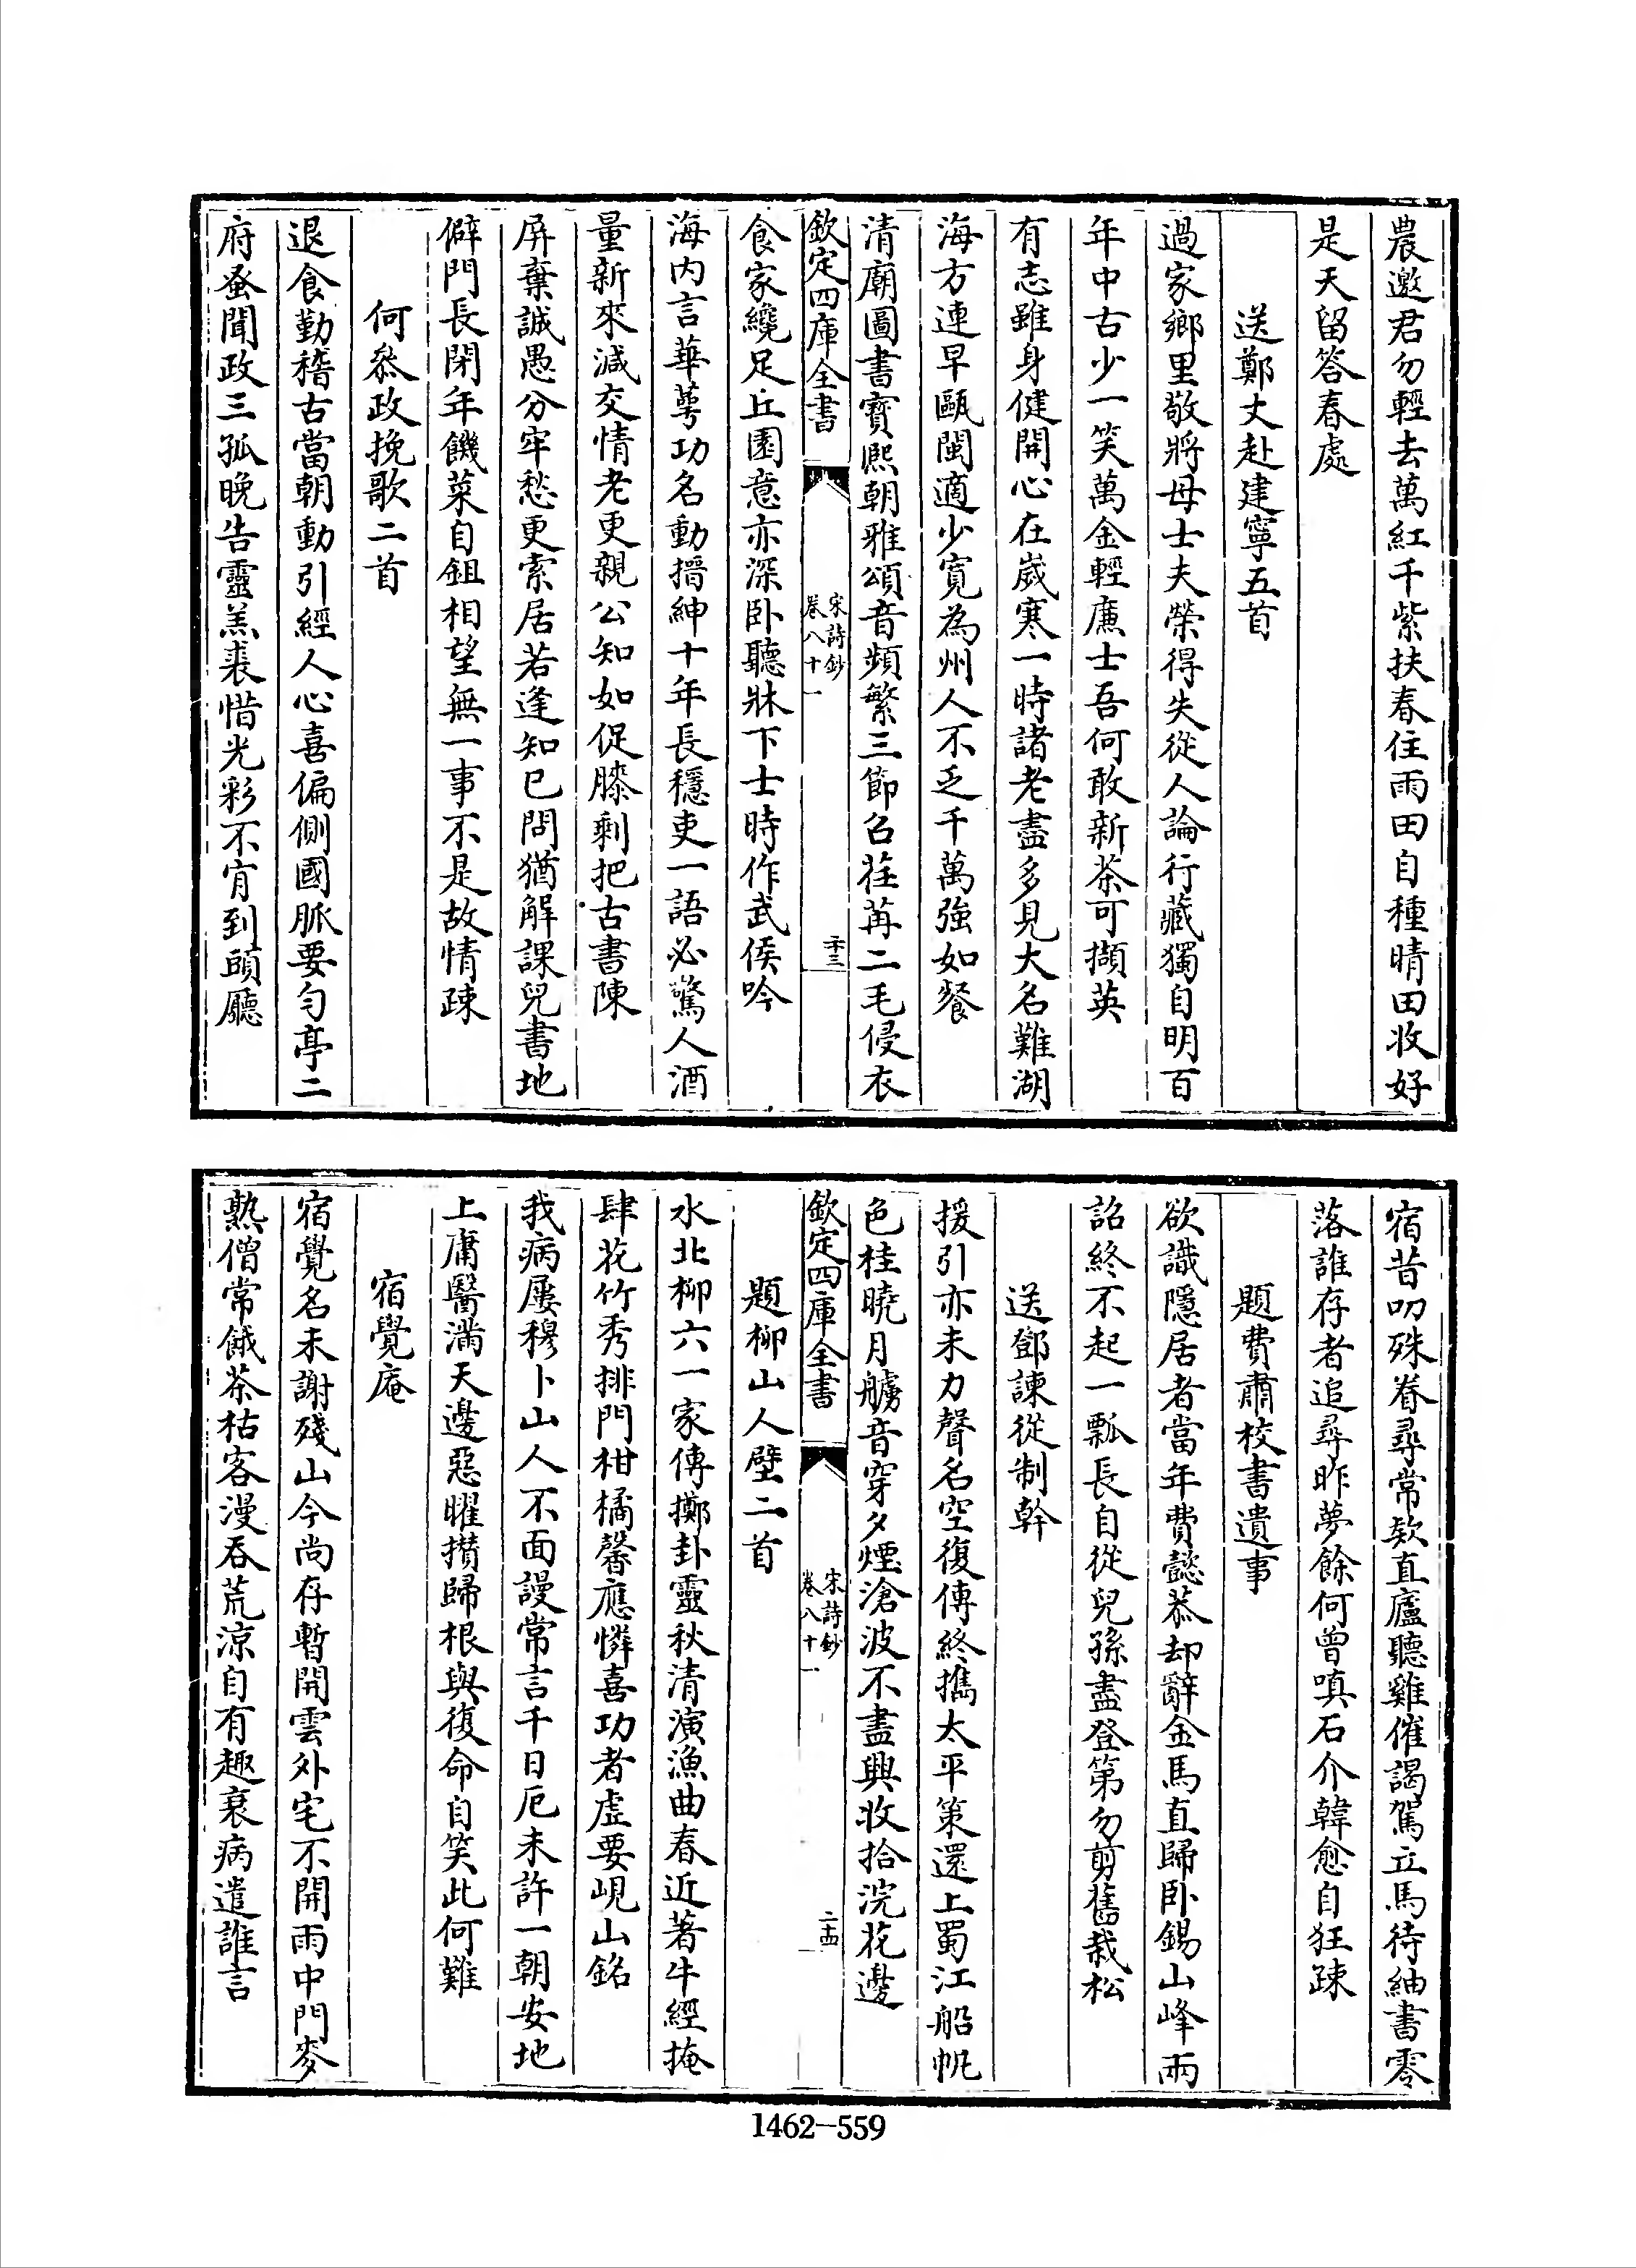 農邀君勿輕去萬紅千紫扶春住雨田自種晴田收好
是天留答春處
送鄭丈赴建寧五首
過家鄉里敬將母士夫榮得失從人論行藏獨自明百
年中古少一笑萬金輕廉士吾何敢新茶可擷英
有志雖身健開心在嵗寒一時諸老盡多見大名難湖
海方連早甌閩適少寛為州人不乏千萬強如餐
清廟圖書寶熙朝雅頌音頻繁三節召荏苒二毛侵衣
欽定四庫全書
宋詩鈔
卷八十一
二十三
食家纔足丘園意亦深卧聽牀下士時作武侯吟
海内言華萼功名動搢紳十年長穩吏一語必驚人酒
量新來減交情老更親公知如促膝剩把古書陳
屏棄誠愚分牢愁更索居若逢知已問猶解課兒書地
僻門長閉年饑菜自鉏相望無一事不是故情疎
何叅政挽歌二首
退食勤稽古當朝動引經人心喜偏側國脈要勻亭二
府蚤聞政三孤晚告靈羔裘惜光彩不肯到頭廳
宿昔叨殊眷尋常欵直廬聽雞催謁駕立馬待紬書零
落誰存者追尋昨夢餘何曾嗔石介韓愈自狂疎
題費肅校書遺事
欲識隱居者當年費懿恭却辭金馬直歸卧錫山峰兩
詔終不起一瓢長自從兒孫盡登第勿剪舊栽松
送鄧諫從制幹
援引亦未力聲名空復傳終攜太平策還上蜀江船帆
色桂曉月艣音穿夕煙滄波不盡興收拾浣花邊
欽定四庫全書
宋詩鈔
卷八十一
二十四
題柳山人壁二首
水北柳六一家傳擲卦靈秋清演漁曲春近著牛經掩
肆花竹秀排門柑橘馨應憐喜功者虛要峴山銘
我病屢穆卜山人不面謾常言千日厄未許一朝安地
上庸醫滿天邊惡曜攅歸根與復命自笑此何難
宿覺庵
宿覺名未謝殘山今尚存暫開雲外宅不開雨中門麥
熟僧常餓茶枯客漫呑荒涼自有趣衰病遣誰言
1462—559